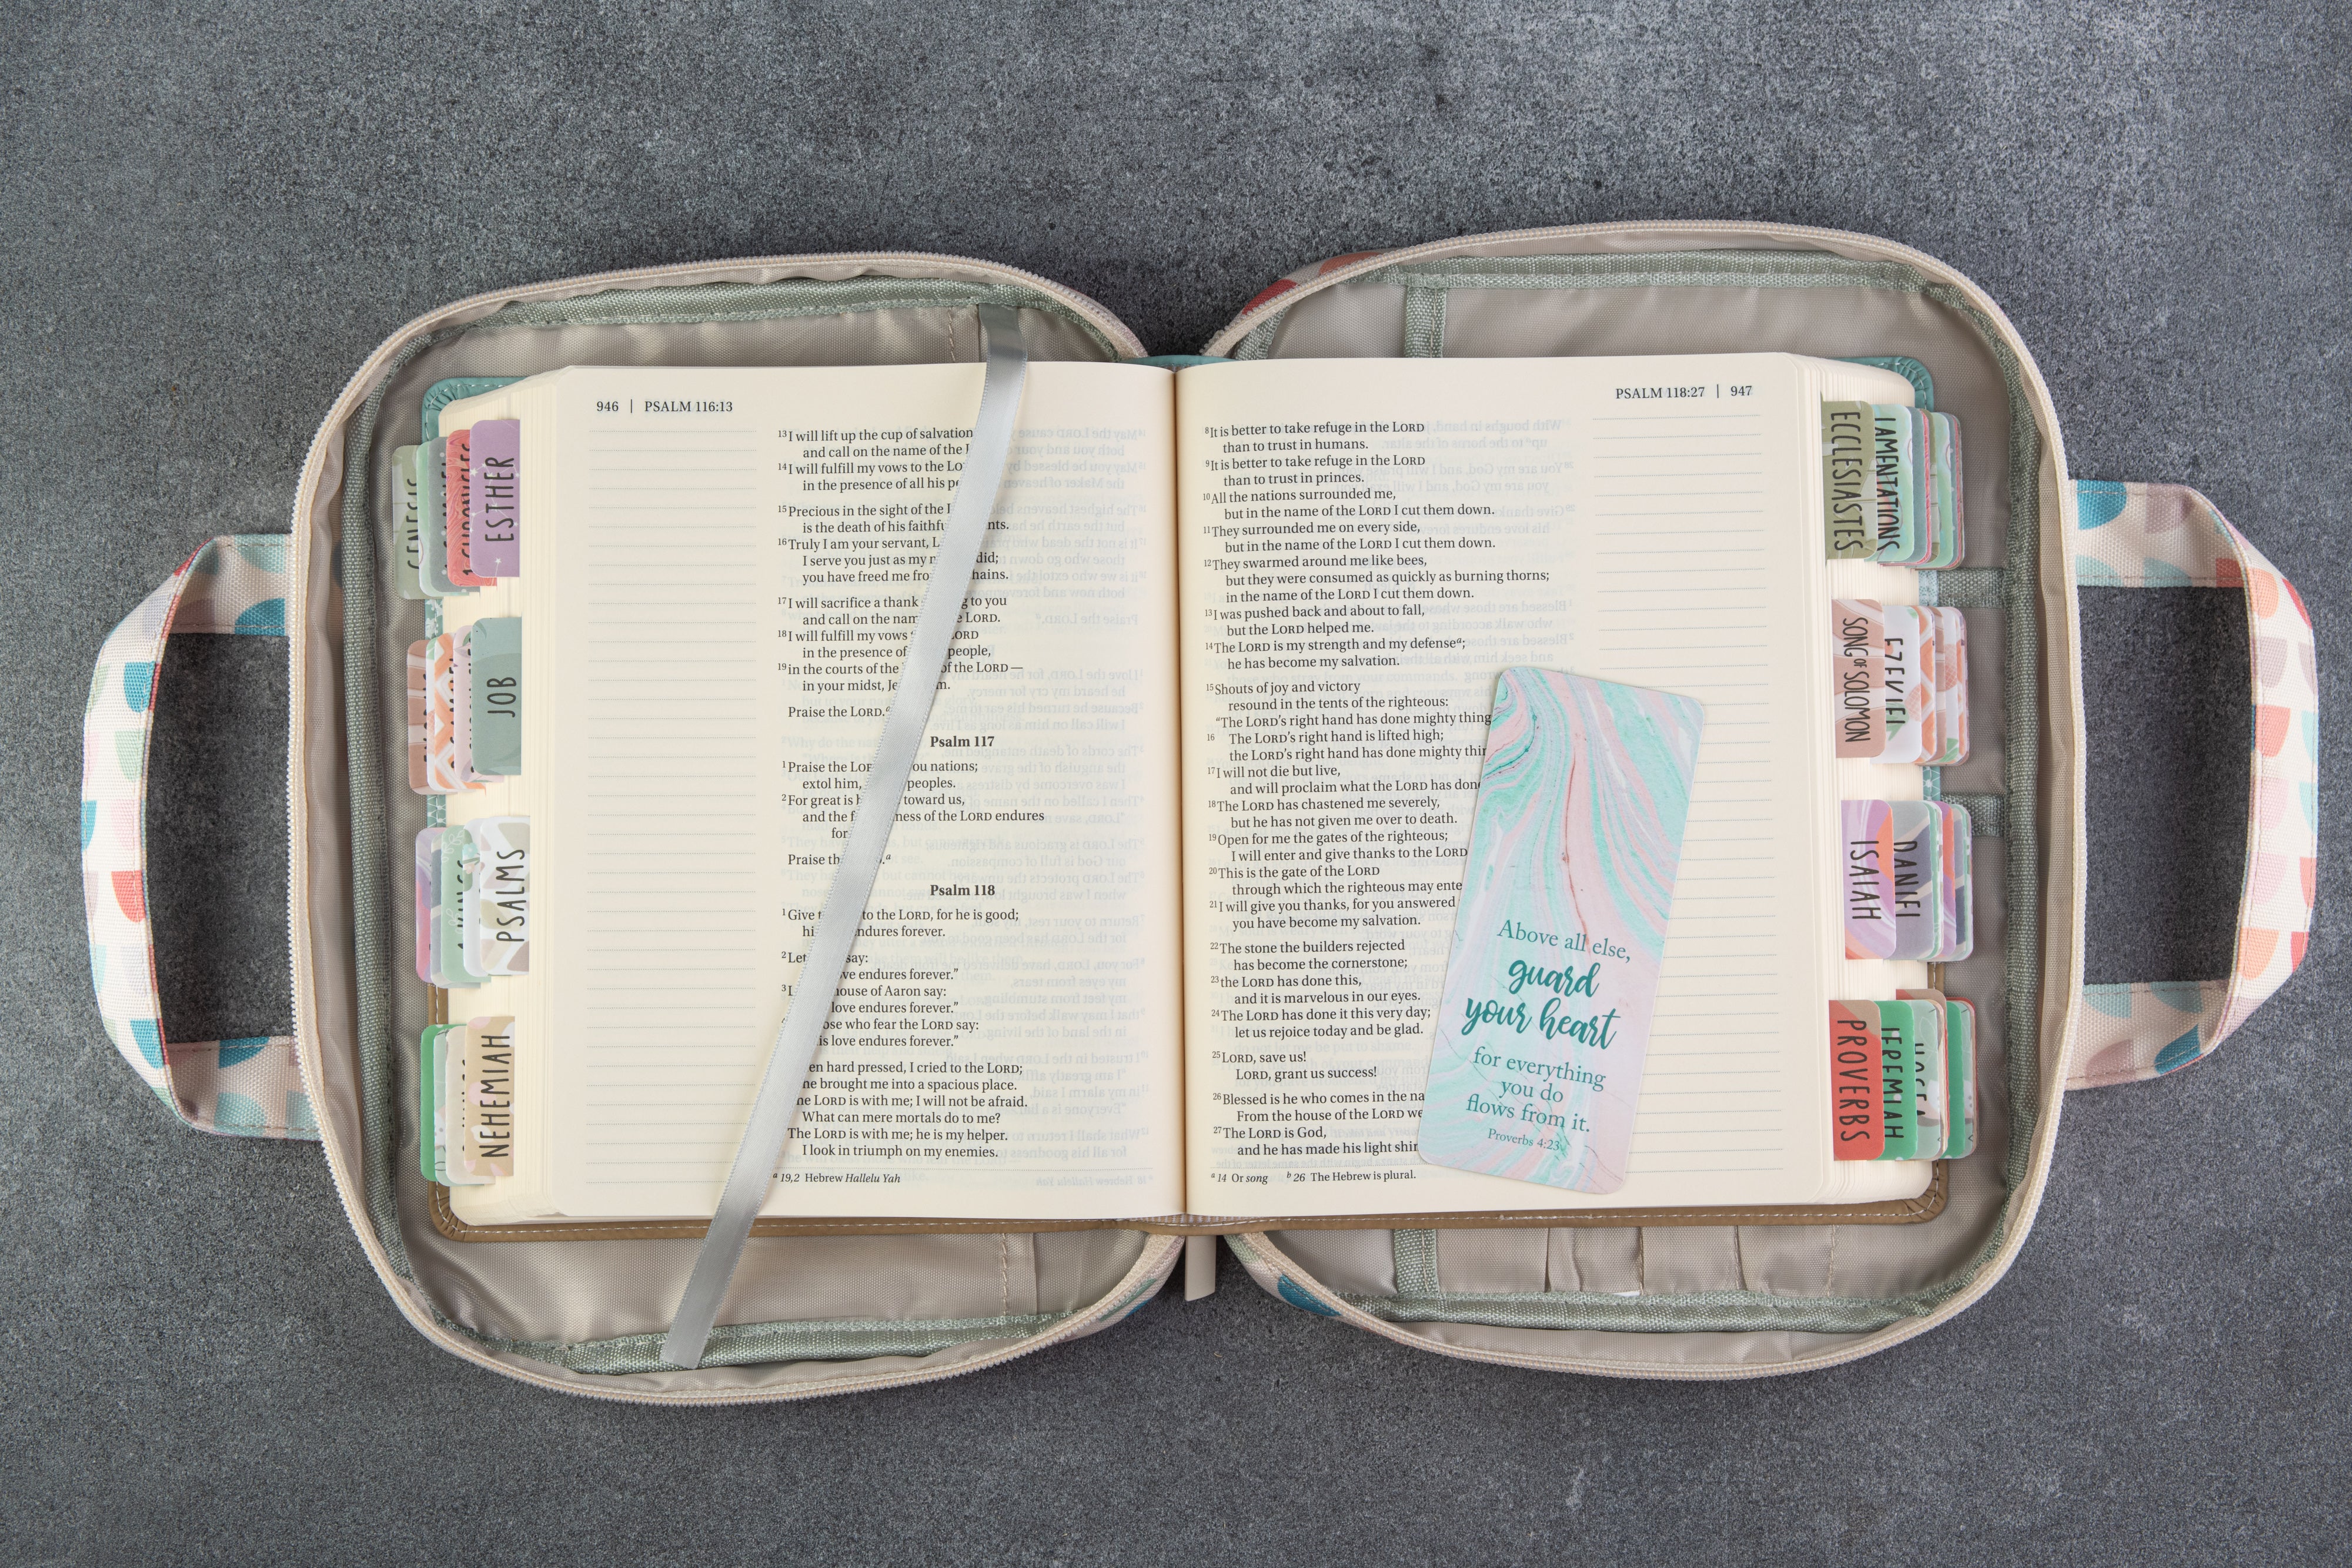 946 | PSALM 116:13
13 I will lift up the cup of salvation
and call on the name of the
14 I will fulfill my vows to the
in the presence of all his
15 Precious in the sight of the
is the death of his
16 Truly I am your servant,
I serve you just as my did;
you have freed me
17 I will sacrifice a thank to you
and call on the LORD.
18 I will fulfill my vows LORD
in the presence of people,
19 in the courts of the of the LORD—
in your midst,
Praise the LORD.a
Psalm 117
1 Praise the you nations;
extol him, peoples.
2 For great is toward us,
and the of the LORD endures
Praise
Psalm 118
1 Give to the LORD, for he is good;
endures forever.
2 Let say:
endures forever.”
3 house of Aaron say:
love endures forever.”
who fear the LORD say:
love endures forever.”
hard pressed, I cried to the LORD;
he brought me into a spacious place.
LORD is with me; I will not be afraid.
What can mere mortals do to me?
The LORD is with me; he is my helper.
I look in triumph on my enemies.
a 19,2 Hebrew Hallelu Yah
PSALM 118:27 | 947
8 It is better to take refuge in the LORD
than to trust in humans.
9 It is better to take refuge in the LORD
than to trust in princes.
10 All the nations surrounded me,
but in the name of the LORD I cut them down.
11 They surrounded me on every side,
but in the name of the LORD I cut them down.
12 They swarmed around me like bees,
but they were consumed as quickly as burning thorns;
in the name of the LORD I cut them down.
13 I was pushed back and about to fall,
but the LORD helped me.
14 The LORD is my strength and my defense a;
he has become my salvation.
15 Shouts of joy and victory
resound in the tents of the righteous:
“The LORD’s right hand has done mighty
16 The LORD’s right hand is lifted high;
the LORD’s right hand has done mighty
17 I will not die but live,
and will proclaim what the LORD has
18 The LORD has chastened me severely,
but he has not given me over to death.
19 Open for me the gates of the righteous;
I will enter and give thanks to the LORD
20 This is the gate of the LORD
through which the righteous may
21 I will give you thanks, for you answered
you have become my salvation.
22 The stone the builders rejected
has become the cornerstone;
23 the LORD has done this,
and it is marvelous in our eyes.
24 The LORD has done it this very day;
let us rejoice today and be glad.
25 LORD, save us!
LORD, grant us success!
26 Blessed is he who comes in the
From the house of the LORD
27 The LORD is God,
and he has made his light
a 14 Or song b 26 The Hebrew is plural.
Above all else,
guard
your heart
for everything
you do
flows from it.
Proverbs 4:23
ESTHER
JOB
PSALMS
NEHEMIAH
ECCLESIASTES
LAMENTATIONS
SONG OF SOLOMON
EZEKIEL
ISAIAH
DANIEL
PROVERBS
JEREMIAH